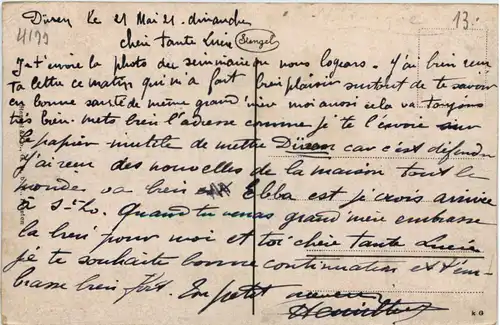 Düren le 21 Mai 21. dimanche
13.
4199
chère tante Lucie
Stengel
Je t'envoie la photo du séminaire ou nous logeons. J'ai bien reçu
ta lettre ce matin qui m'a fait bien plaisir surtout de te savoir
en bonne santé de même grand'mère moi aussi cela va toujours
très bien. mets bien l'adresse comme je te l'envoie sur
le papier inutile de mettre Düren car c'est défendu
J'ai reçu des nouvelles de la maison tout le
monde va bien Ebba est je crois arrivée
à St-Lo. Quand tu verras grand'mère embrasse
la bien pour moi et toi chère tante Lucie
je te souhaite bonne continuation et t'em-
brasse bien fort. Ton petit neveu
KG